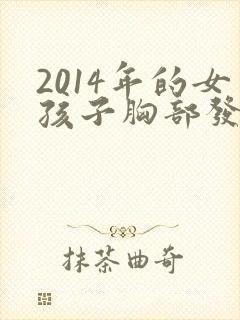 2014年的女
孩子胸部發
抹茶曲奇